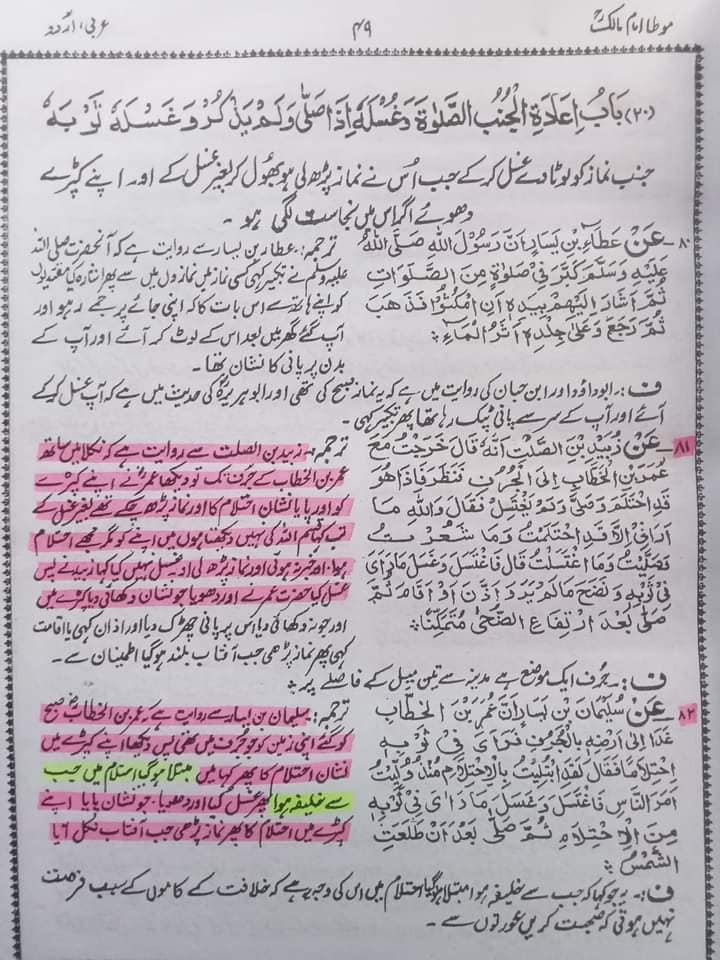 موطا امام مالکؒ
۴۹
عربی، اردو
(۲۰) بَابُ اِعَادَةِ الْجُنُبِ الصَّلٰوةَ وَغُسْلِهٖ اِذَا صَلّٰى وَلَمْ يَذْكُرْ وَغَسْلِهٖ ثَوْبَهٗ
جنب نماز کو لوٹا دے غسل کر کے جب اُس نے نماز پڑھ لی ہو بھُول کر بغیر غسل کے اور اپنے کپڑے
دھوئے اگر اس میں نجاست لگی ہو۔
۸۰۔ عَنْ عَطَاءِ بْنِ يَسَارٍ اَنَّ رَسُوْلَ اللّٰهِ صَلَّى اللّٰهُ
عَلَيْهِ وَسَلَّمَ كَبَّرَ فِيْ صَلٰوةٍ مِنَ الصَّلَوَاتِ
ثُمَّ اَشَارَ اِلَيْهِمْ بِيَدِهٖ اَنِ امْكُثُوْا فَذَهَبَ
ثُمَّ رَجَعَ وَعَلٰى جِلْدِهٖ اَثَرُ الْمَاءِ ؞
ترجمہ: عطا بن یسار سے روایت ہے کہ آنحضرت صلی اللہ
علیہ وسلم نے تکبیر کہی کسی نماز میں نمازوں میں سے پھر اشارہ کیا مقتدیوں
کو اپنے ہاتھ سے اس بات کا کہ اپنی جائے پر جمے رہو اور
آپ گئے گھر میں بعد اس کے لوٹ کر آئے اور آپ کے
بدن پر پانی کا نشان تھا۔
ف :۔ ابوداؤد اور ابن حبان کی روایت میں ہے کہ یہ نماز صبح کی تھی اور ابوہریرہؓ کی حدیث میں ہے کہ آپ غسل کر کے
آئے اور آپ کے سر سے پانی ٹپک رہا تھا پھر تکبیر کہی۔
۸۱۔ عَنْ زُيَيْدِ بْنِ الصَّلْتِ اَنَّهٗ قَالَ خَرَجْتُ مَعَ
عُمَرَ بْنِ الْخَطَّابِ اِلَى الْجُرُفِ فَنَظَرَ فَاِذَا هُوَ
قَدِ احْتَلَمَ وَصَلّٰى وَلَمْ يَغْتَسِلْ فَقَالَ وَاللّٰهِ مَا
اَرَانِيْ اِلَّا قَدِ احْتَلَمْتُ وَمَا شَعَرْتُ
وَصَلَّيْتُ وَمَا اغْتَسَلْتُ قَالَ فَاغْتَسَلَ وَغَسَلَ مَا رَاٰى
فِيْ ثَوْبِهٖ وَنَضَحَ مَا لَمْ يَرَ وَاَذَّنَ اَوْ اَقَامَ ثُمَّ
صَلّٰى بَعْدَ ارْتِفَاعِ الضُّحٰى مُتَمَكِّنًا ؞
ترجمہ:۔ زبید بن الصلت سے روایت ہے کہ نکلا میں ساتھ
عمر بن الخطاب کے جُرف تک تو دیکھا عمرؓ نے اپنے کپڑے
کو اور پایا نشان احتلام کا اور نماز پڑھ چکے تھے بغیر غسل کے
تب کہا قسم اللہ کی نہیں دیکھتا ہوں میں اپنے کو مگر مجھے احتلام
ہوا۔ اور خبر نہ ہوئی اور نماز پڑھ لی اور غسل نہیں کیا کہا زبید نے پس
غسل کیا حضرت عمر نے اور دھویا جو نشان دکھائی دیا کپڑے میں
اور جو نہ دکھائی دیا اس پر پانی چھڑک دیا اور اذان کہی یا اقامت
کہی پھر نماز پڑھی جب آفتاب بلند ہو گیا اطمینان سے۔
ف :۔ جُرف ایک موضع ہے مدینہ سے تین میل کے فاصلے پر ؞
۸۲۔ عَنْ سُلَيْمَانَ بْنِ يَسَارٍ اَنَّ عُمَرَ بْنَ الْخَطَّابِ
غَدَا اِلٰى اَرْضِهٖ بِالْجُرُفِ فَرَاٰى فِيْ ثَوْبِهٖ
اِحْتِلَامًا فَقَالَ لَقَدِ ابْتُلِيْتُ بِالْاِحْتِلَامِ مُنْذُ وُلِّيْتُ
اَمْرَ النَّاسِ فَاغْتَسَلَ وَغَسَلَ مَا رَاٰى فِيْ ثَوْبِهٖ
مِنَ الْاِحْتِلَامِ ثُمَّ صَلّٰى بَعْدَ اَنْ طَلَعَتِ
الشَّمْسُ ؞
ترجمہ: سلیمان بن یسار سے روایت ہے کہ عمر بن الخطابؓ صبح
کو گئے اپنی زمین کو جو جرف میں تھی پس دیکھا اپنے کپڑے میں
نشان احتلام کا پھر کہا میں مبتلا ہو گیا احتلام میں جب
سے خلیفہ ہوا پھر غسل کیا اور دھویا۔ جو نشان پایا اپنے
کپڑے میں احتلام کا پھر نماز پڑھی جب آفتاب نکل آیا
ف :۔ یہ جو کہا کہ جب سے خلیفہ ہوا مبتلا ہو گیا احتلام میں اس کی وجہ یہ ہے کہ خلافت کے کاموں کے سبب فرصت
نہیں ہوتی کہ صحبت کریں عورتوں سے۔